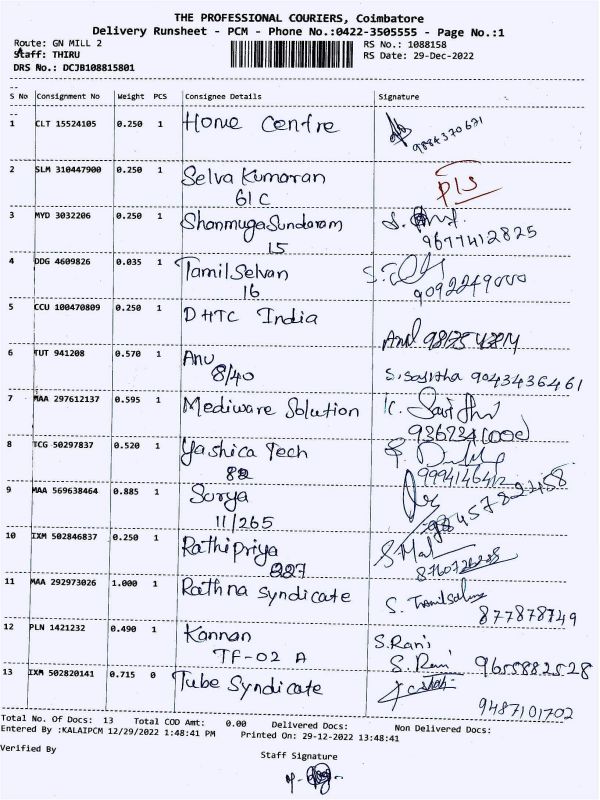 THE PROFESSIONAL COURIERS, Coimbatore
Delivery Runsheet - PCM - Phone No.:0422-3505555 - Page No.:1
Route: GN MILL 2 RS No.: 1088158
Staff: THIRU RS Date: 29-Dec-2022
DRS No.: DCJB108815801
S No Consignment No Weight PCS Consignee Details Signature
1 CLT 15524105 0.250 1 Home Centre
9884370621
2 SLM 310447900 0.250 1 Selva Kumaran
61 C
3 MYD 3032206 0.250 1 Shanmuga Sundaram
15 9677412825
4 DDG 4609826 0.035 1 Tamil Selvan
16 9092249000
5 CCU 100470809 0.250 1 DHTC India
6 TUT 941208 0.570 1 Anu
8/40 S. Sasitha 9043436461
7 MAA 297612137 0.595 1 Mediware Solution K.
8 TCG 50297837 0.520 1 Yashica Tech
82 9994146412
9 MAA 569638464 0.885 1 Surya
11/265
10 IXM 502846837 0.250 1 Rathipriya
227
11 MAA 292973026 1.000 1 Rathna Syndicate S.
877878749
12 PLN 1421232 0.490 1 Kannan S.Rani
TF-02 A S. Rani 9655882528
13 IXM 502820141 0.715 0 Tube Syndicate
9487101702
Total No. Of Docs: 13 Total COD Amt: 0.00 Delivered Docs: Non Delivered Docs:
Entered By :KALAIPCM 12/29/2022 1:48:41 PM Printed On: 29-12-2022 13:48:41
Verified By
Staff Signature